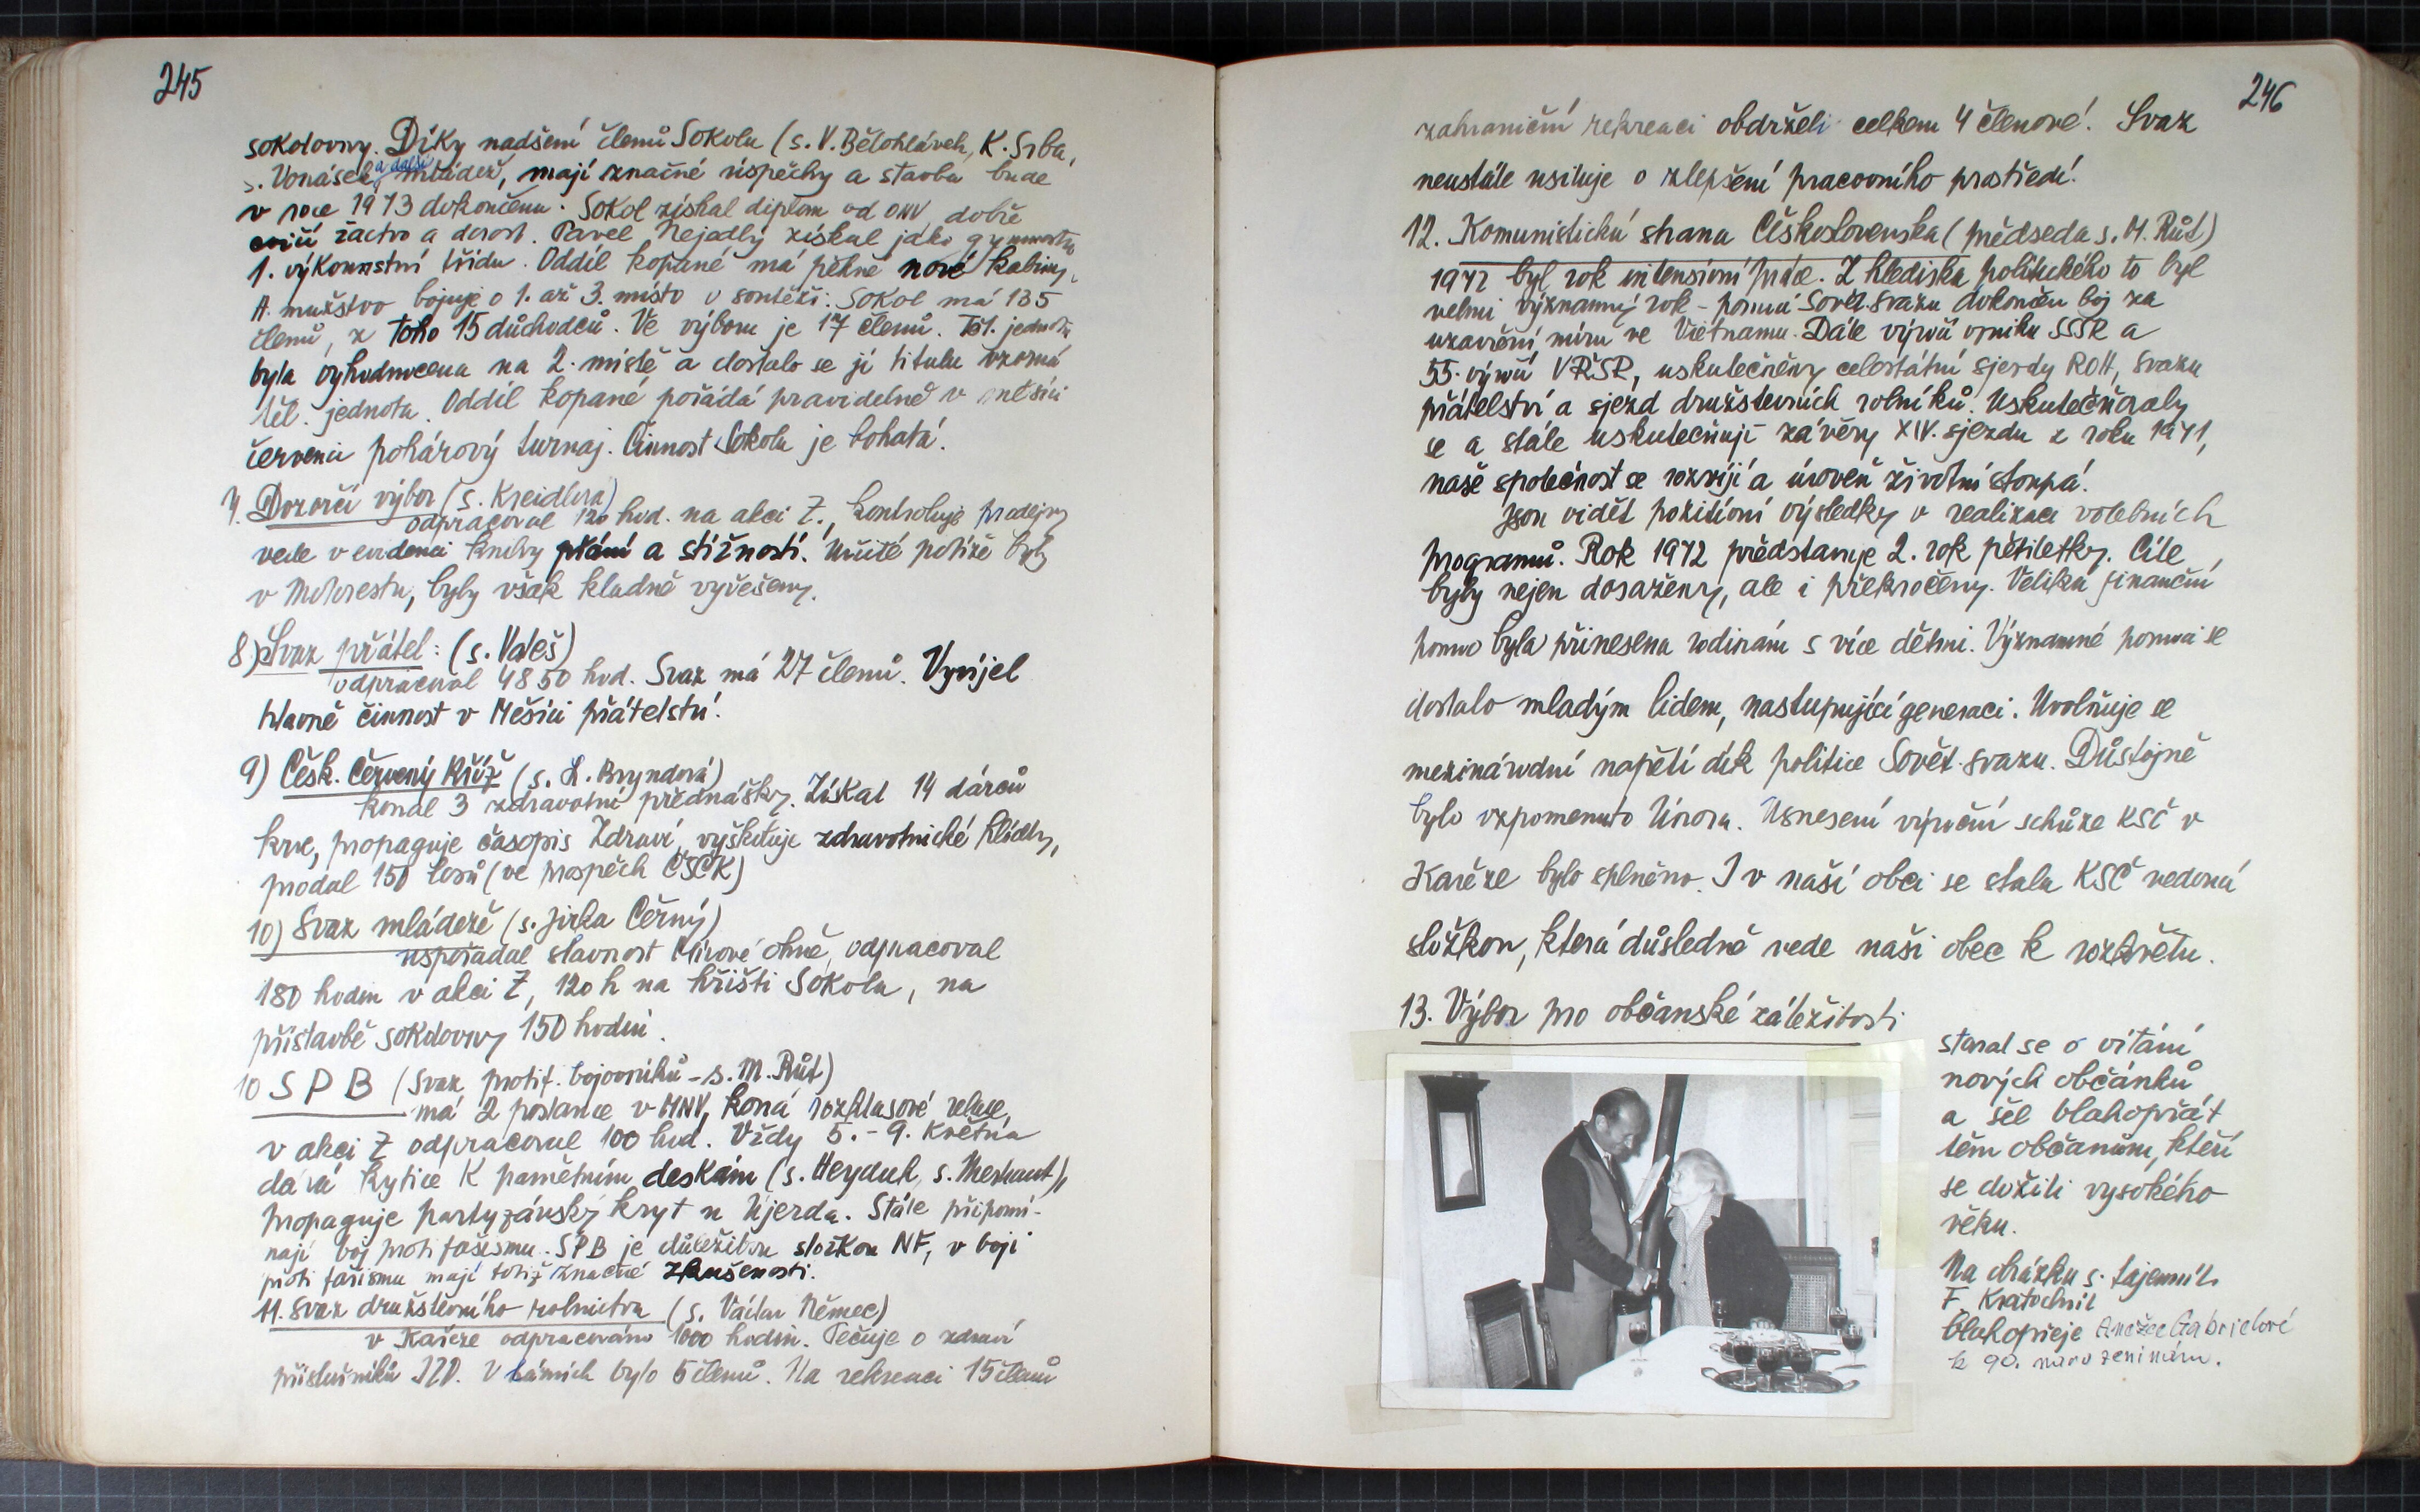 245
sokolovny. Díky nadšení členů Sokola (s. V. Bělohlávek, K. Srba,
s. Vonásek a další mládež, mají značné úspěchy a stavba bude
v roce 1973 dokončena. Sokol získal diplom od ONV, dobře
cvičí žactvo a dorost. Pavel Nejedlý získal jako gymnasta
1. výkonnstní třídu. Oddíl kopané má pěkné nové kabiny,
A. mužstvo bojuje o 1. až 3. místo v soutěži. Sokol má 135
členů, z toho 15 důchodců. Ve výboru je 17 členů. Těl. jednota
byla vyhodnocena na 2. místě a dostalo se jí titulu vzorná
těl. jednota. Oddíl kopané pořádá pravidelně v měsíci
červenci pohárový turnaj. Činnost Sokola je bohatá.
7. Dozorčí výbor (s. Kreidlová)
odpracoval 120 hod. na akci Z., kontroluje prodejny
vede v evidenci knihy přání a stížností. Určité potíže byly
v Motorestu, byly však kladně vyřešeny.
8) Svaz přátel: (s. Valeš)
odpracoval 4850 hod. Svaz má 27 členů. Vyvíjel
hlavně činnost v Měsíci přátelství.
9) Česk. Červený kříž (s. L. Bryndová)
konal 3 zdravotní přednášky. Získal 14 dárců
krve, propaguje časopis Zdraví, vyškoluje zdravotnické hlídky,
prodal 150 losů (ve prospěch ČSČK)
10) Svaz mládeže (s. Jirka Černý)
uspořádal slavnost Mírové ohně, odpracoval
180 hodin v akci Z, 120 h na hřišti Sokola, na
přístavbě sokolovny 150 hodin.
10 SPB (Svaz protif. bojovníků - s. M. Růt)
má 2 poslance v MNV, koná rozhlasové relace,
v akci Z odpracoval 100 hod. Vždy 5. - 9. května
dává kytice k pamětním deskám (s. Heyduk, s. Merhaut),
propaguje partyzánský kryt u Újezda. Stále připomí-
nají boj proti fašismu. SPB je důležitou složkou NF, v boji
proti fašismu mají totiž značné zkušenosti.
11. Svaz družstevního rolnictva (s. Václav Němec)
v Kařeze odpracováno 1000 hodin. Pečuje o zdraví
příslušníků JZD. V lázních bylo 6 členů. Na rekreaci 15 členů
246
zahraniční rekreaci obdrželi celkem 4 členové. Svaz
neustále usiluje o zlepšení pracovního prostředí.
12. Komunistická strana Československa (předseda s. M. Růt)
1972 byl rok intensivní práce. Z hlediska politického to byl
velmi významný rok - pomocí Sovět. svazu dokončen boj za
uzavření míru ve Vietnamu. Dále výročí vzniku SSSR a
55. výročí VŘSR, uskutečněny celostátní sjezdy ROH, Svazu
přátelství a sjezd družstevních rolníků. Uskutečňovaly
se a stále uskutečňují závěry XIV. sjezdu z roku 1971,
naše společnost se rozvíjí a úroveň životní stoupá.
Jsou vidět pozitivní výsledky v realizaci volebních
programů. Rok 1972 představuje 2. rok pětiletky. Cíle
byly nejen dosaženy, ale i překročeny. Veliká finanční
pomoc byla přinesena rodinám s více dětmi. Významné pomoci se
dostalo mladým lidem, nastupující generaci. Uvolňuje se
mezinárodní napětí dík politice Sovět. svazu. Důstojně
bylo vzpomenuto Února. Usnesení výroční schůze KSČ v
Kařeze bylo splněno. I v naší obci se stala KSČ vedoucí
složkou, která důsledně vede naši obec k rozkvětu.
13. Výbor pro občanské záležitosti
staral se o vítání
nových občánků
a šel blahopřát
těm občanům, kteří
se dožili vysokého
věku.
Na obrázku s. tajemník
F. Kratochvil
blahopřeje Anežce Gabrielové
k 90. narozeninám.